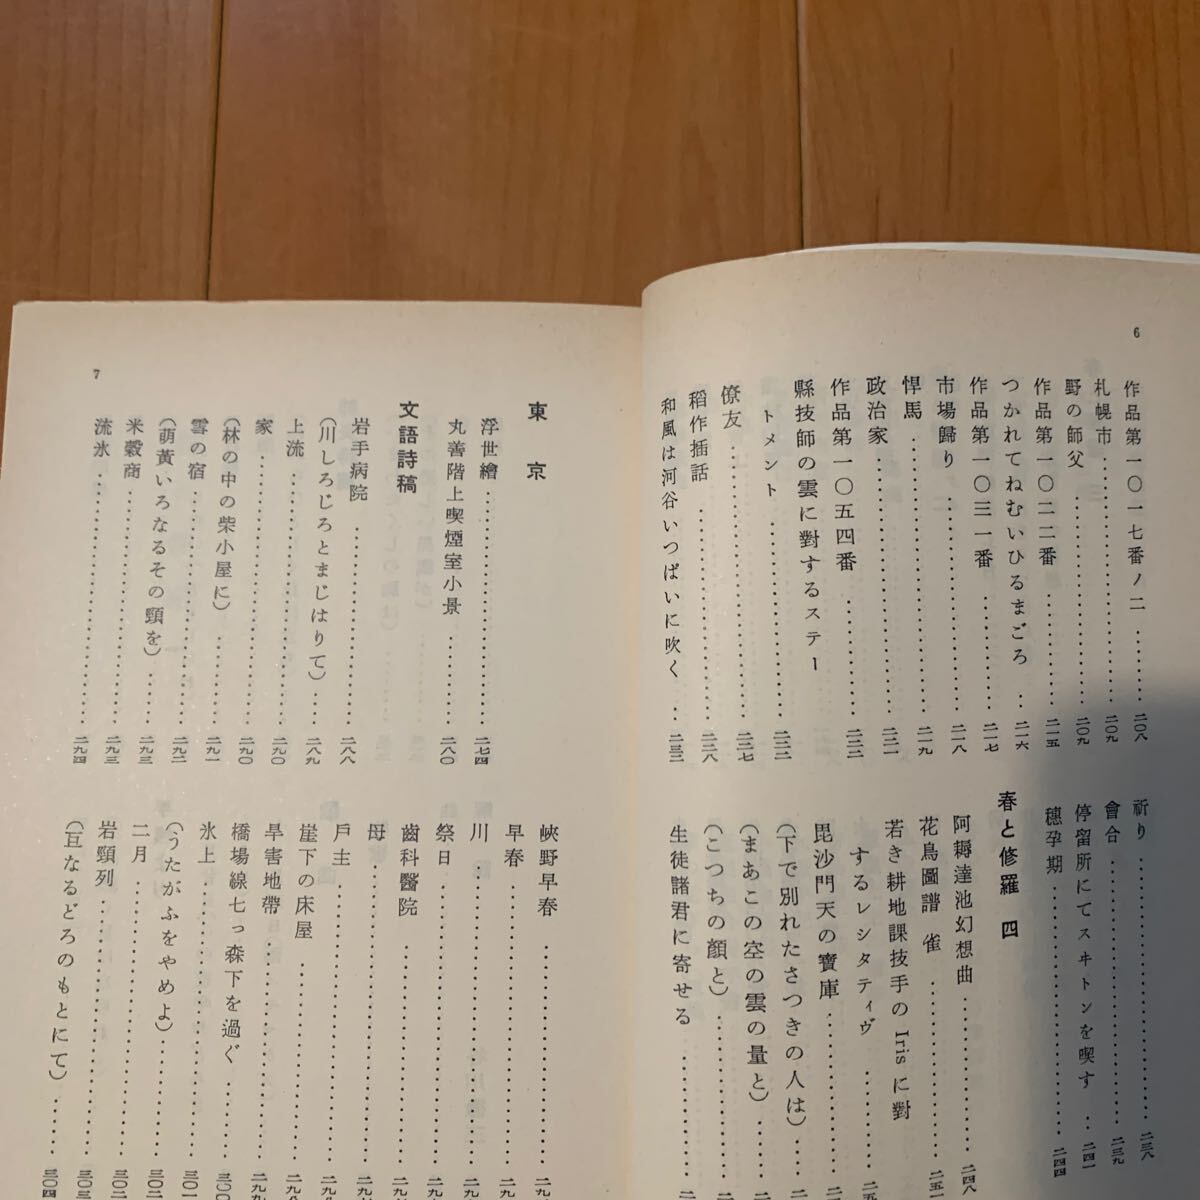 6
作品第一〇一七番ノ二……二〇八
札幌市……二〇九
野の師父……二〇九
作品第一〇二二番……二一五
つかれてねむいひるまごろ…二一六
作品第一〇三一番……二一七
市場歸り……二一八
悍馬……二一九
政治家……二二一
作品第一〇五四番……二二二
縣技師の雲に對するステー
トメント……二二三
僚友……二二七
稻作揷話……二二八
和風は河谷いつぱいに吹く…二三一
祈り……二三八
會合……二三九
停留所にてスヰトンを喫す…二四一
穗孕期……二四四
春と修羅 四
阿耨達池幻想曲……二四八
花鳥圖譜 雀……二五一
若き耕地課技手の Iris に對
するレシタティヴ……二五
毘沙門天の寶庫……二
(下で別れたさつきの人は)……二
(まあこの空の雲の量と)……二
(こつちの顏と)……二
生徒諸君に寄せる……二
東京
浮世繪……二七四
丸善階上喫煙室小景……二八〇
文語詩稿
岩手病院……二八八
(川しろじろとまじはりて)……二八九
上流……二八九
家……二九〇
(林の中の柴小屋に)……二九〇
雪の宿……二九一
(萌黃いろなるその頸を)……二九二
米穀商……二九三
流氷……二九四
峽野早春……二九
早春……二九
川……二九
祭日……二九
齒科醫院……二九
母……二九
戶主……二九
崖下の床屋……二九八
旱害地帶……二九九
橋場線七つ森下を過ぐ……三〇〇
氷上……三〇一
(うたがふをやめよ)……三〇二
二月……三〇二
岩頸列……三〇三
(亘なるどろのもとにて)……三〇四
7